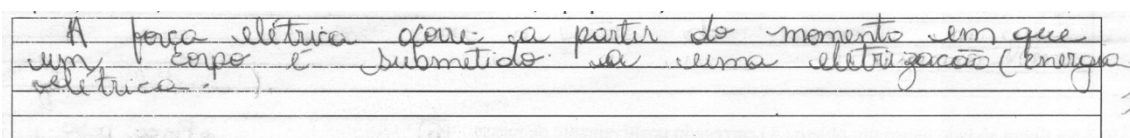 A força elétrica ocorre a partir do momento em que
um corpo é submetido a uma eletrização (energia
elétrica.)